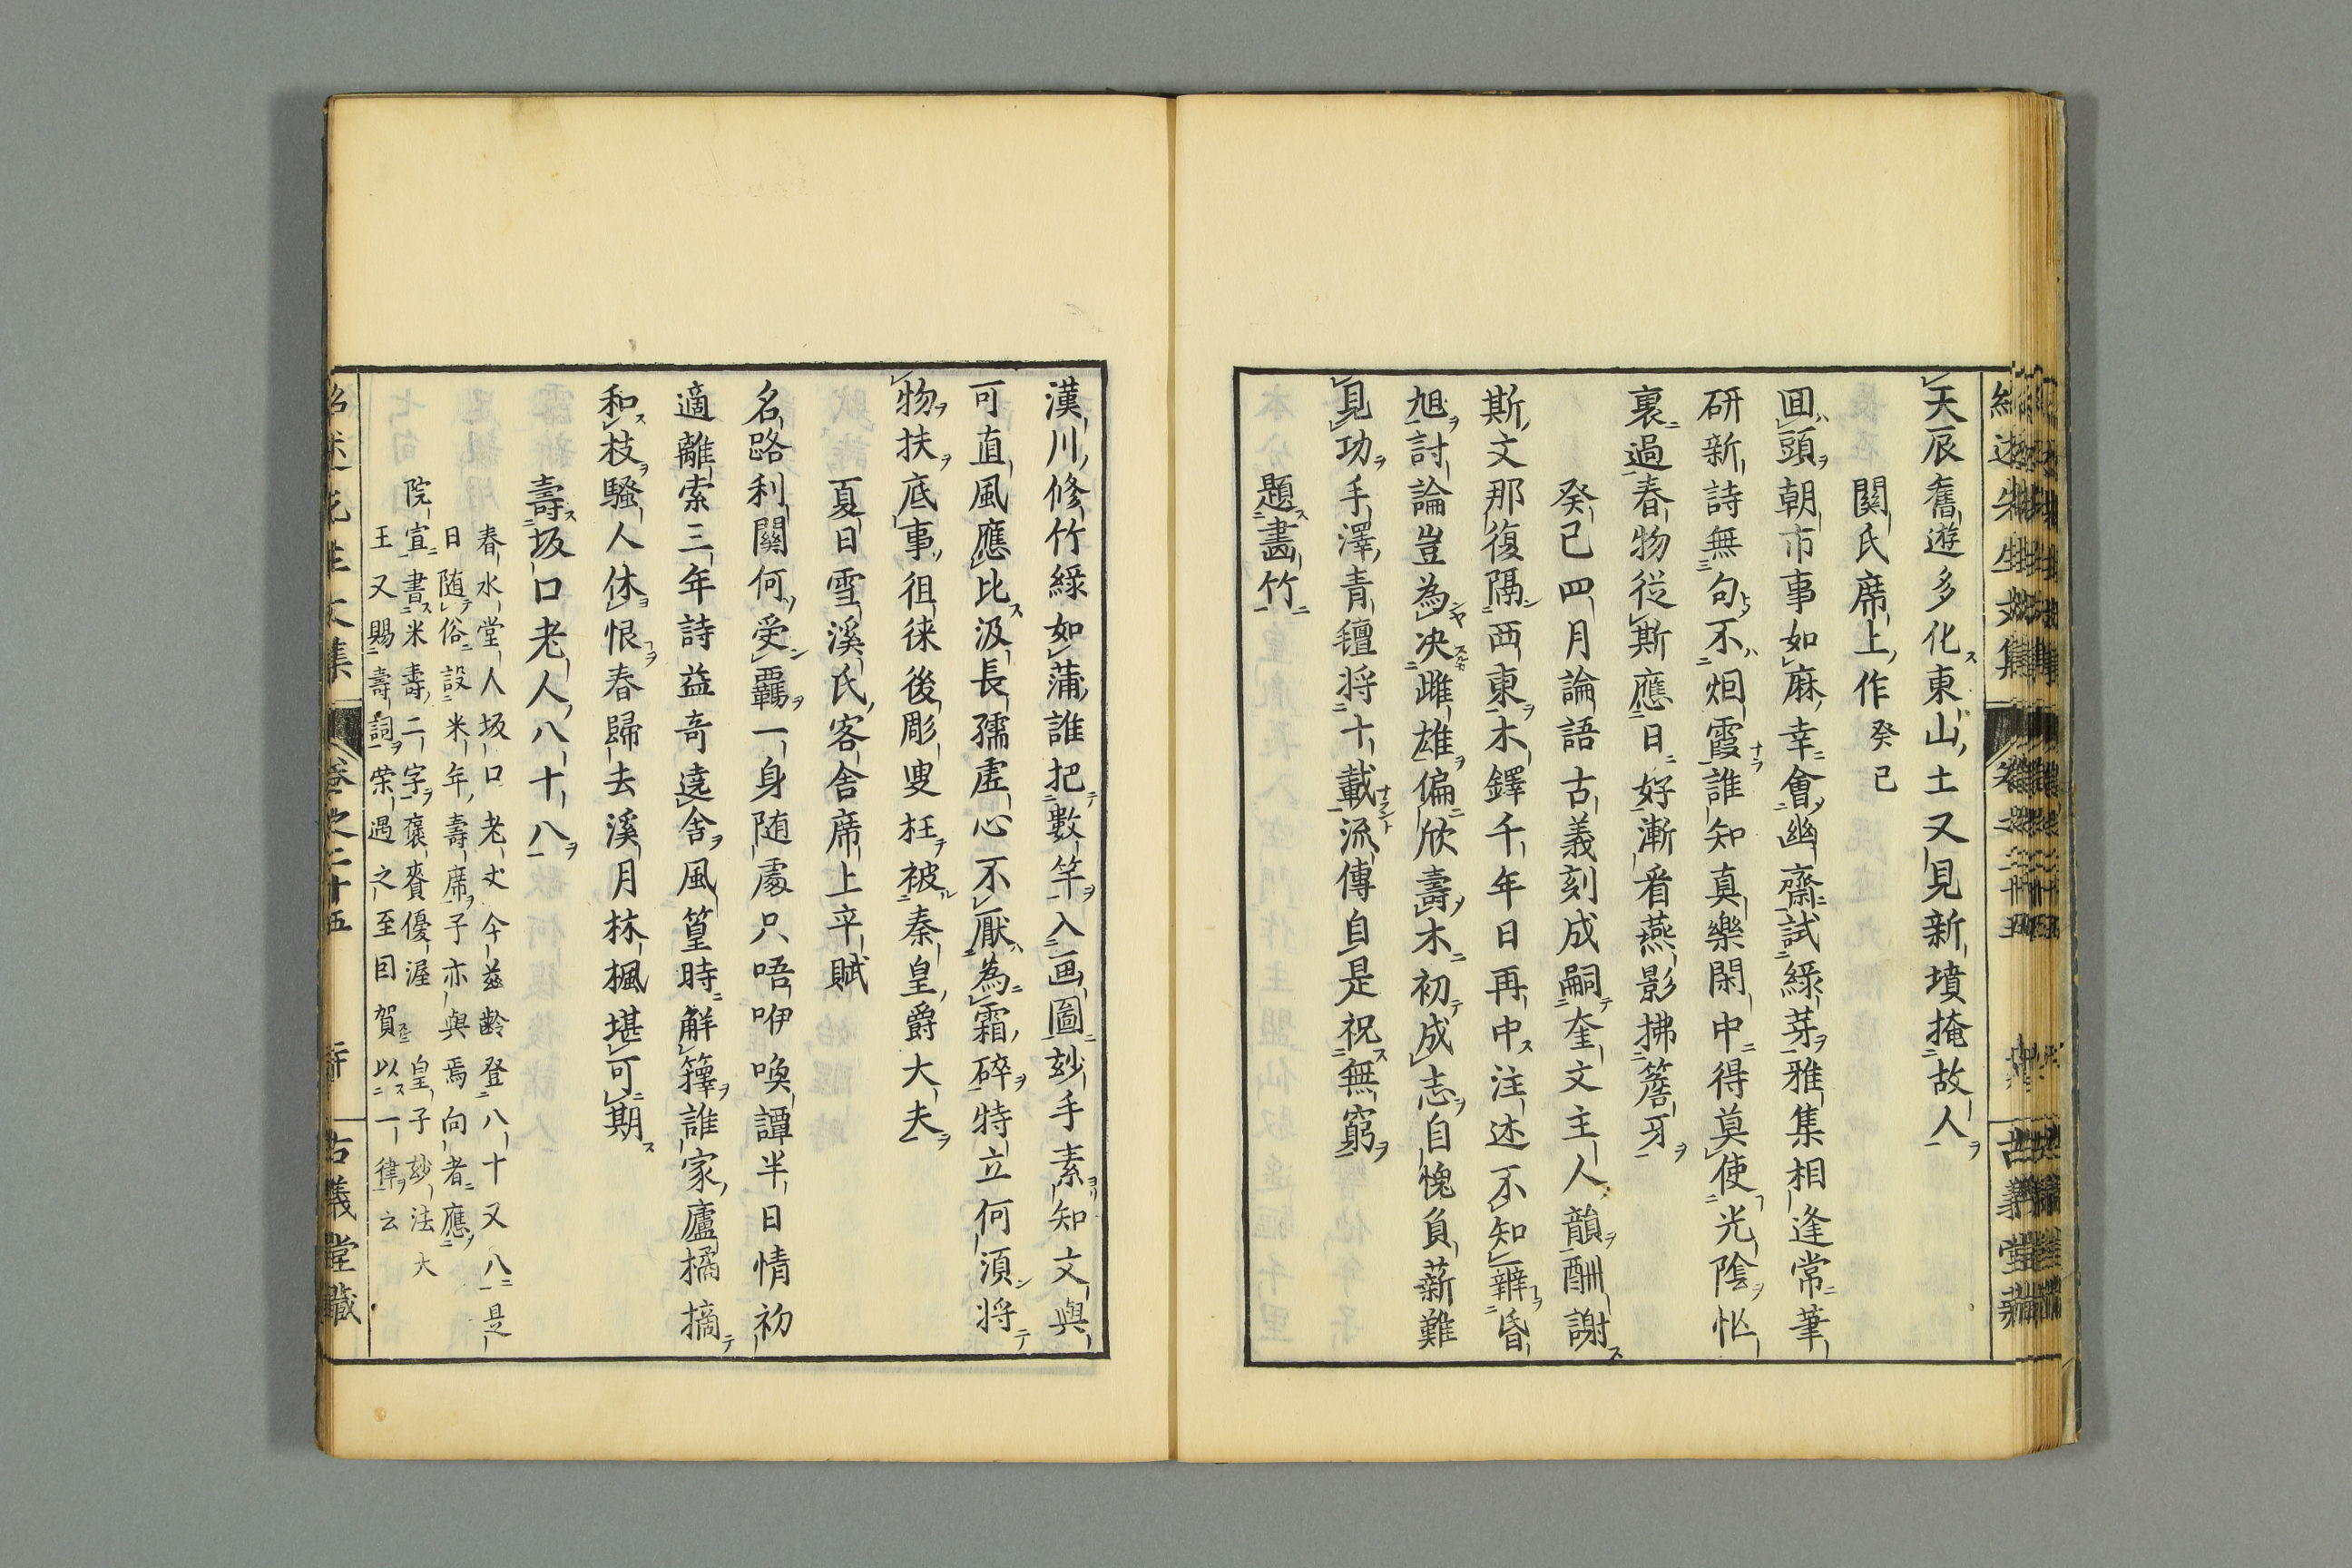 天辰舊遊多化東山土又見新墳掩故人
關氏席上作 癸巳
囬頭朝市事如麻幸會幽齋試綠芽雅集相逢常筆
研新詩無句不烟霞誰知真樂閑中得莫使光陰忙
裏過春物從斯應日好漸看燕影拂簷牙
癸巳四月論語古義刻成嗣奎文主人韻酬謝
斯文那復隔西東木鐸千年日再中注述不知辨昏
旭討論豈為决雌雄偏欣壽木初成志自愧負薪難
見功手澤青氊将十載流傳自是祝無窮
題畵竹
漢川修竹綠如蒲誰把數竿入画圖玅手素知文與
可直風應比汲長孺虛心不厭為霜碎特立何湏将
物扶底事徂徠後彫叟枉被秦皇爵大夫
夏日雪溪氏客舍席上卒賦
名路利關何受覊一身随處只唔咿喚譚半日情初
適離索三年詩益奇遶舍風篁時觧籜誰家廬橘摘
和枝騷人休恨春歸去溪月林楓堪可期
壽坂口老人八十八
春水堂人坂口老丈今玆齡登八十又八是
日随俗設米年壽席子亦與焉向者應
院宣書米壽二字褒賚優渥皇子玅法大
王又賜壽詞荣遇之至因賀以一律云
紹述先生文集 卷之二十五 古義堂藏